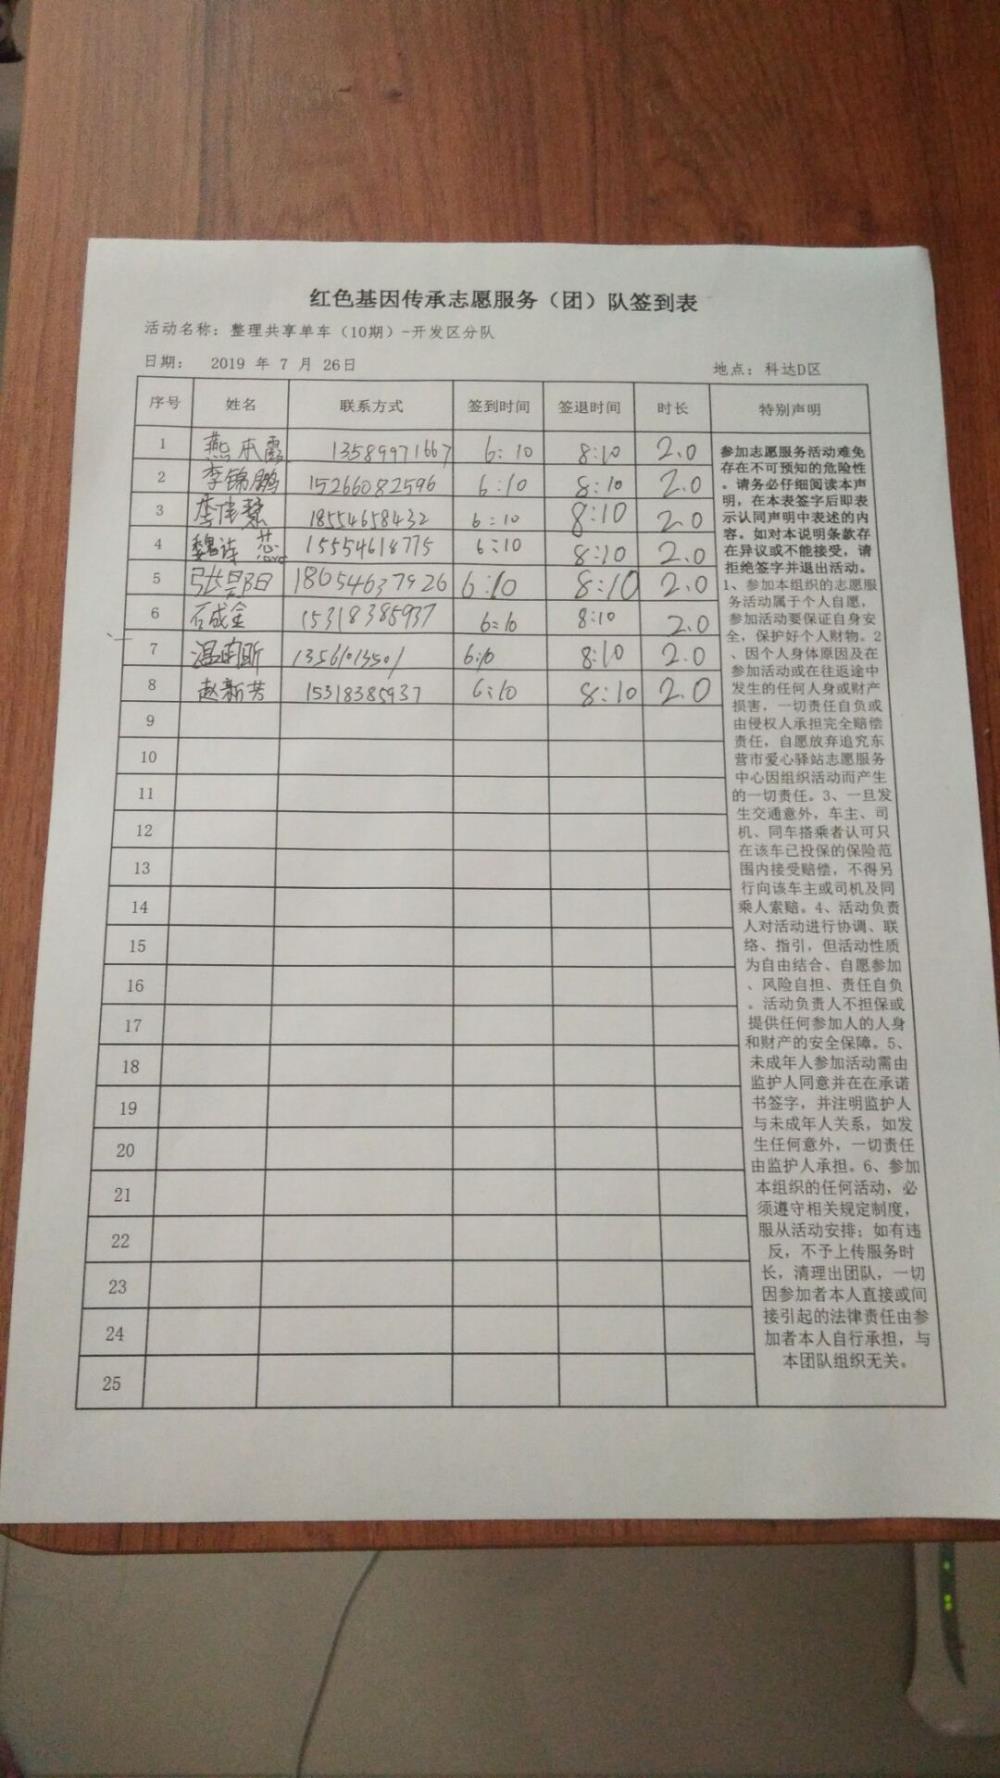 红色基因传承志愿服务（团）队签到表
活动名称：整理共享单车（10期）-开发区分队
日期： 2019 年 7 月 26日 地点：科达D区
序号 姓名 联系方式 签到时间 签退时间 时长 特别声明
1 燕本霞 13589971667 6:10 8:10 2.0
2 李锦鹏 15266082596 6:10 8:10 2.0
3 18554658432 6:10 8:10 2.0
4 魏 15554618775 6:10 8:10 2.0
5 18654637926 6:10 8:10 2.0
6 石成金 15318385937 6:10 8:10 2.0
7 温 13561013501 6:10 8:10 2.0
8 赵新芳 15318385937 6:10 8:10 2.0
9
10
11
12
13
14
15
16
17
18
19
20
21
22
23
24
25
参加志愿服务活动难免
存在不可预知的危险性
。请务必仔细阅读本声
明，在本表签字后即表
示认同声明中表述的内
容。如对本说明条款存
在异议或不能接受，请
拒绝签字并退出活动。
1、参加本组织的志愿服
务活动属于个人自愿，
参加活动要保证自身安
全，保护好个人财物。2
、因个人身体原因及在
参加活动或在往返途中
发生的任何人身或财产
损害，一切责任自负或
由侵权人承担完全赔偿
责任，自愿放弃追究东
营市爱心驿站志愿服务
中心因组织活动而产生
的一切责任。3、一旦发
生交通意外，车主、司
机、同车搭乘者认可只
在该车已投保的保险范
围内接受赔偿，不得另
行向该车主或司机及同
乘人索赔。4、活动负责
人对活动进行协调、联
络、指引，但活动性质
为自由结合、自愿参加
、风险自担、责任自负
。活动负责人不担保或
提供任何参加人的人身
和财产的安全保障。5、
未成年人参加活动需由
监护人同意并在在承诺
书签字，并注明监护人
与未成年人关系，如发
生任何意外，一切责任
由监护人承担。6、参加
本组织的任何活动，必
须遵守相关规定制度，
服从活动安排；如有违
反，不予上传服务时
长，清理出团队，一切
因参加者本人直接或间
接引起的法律责任由参
加者本人自行承担，与
本团队组织无关。